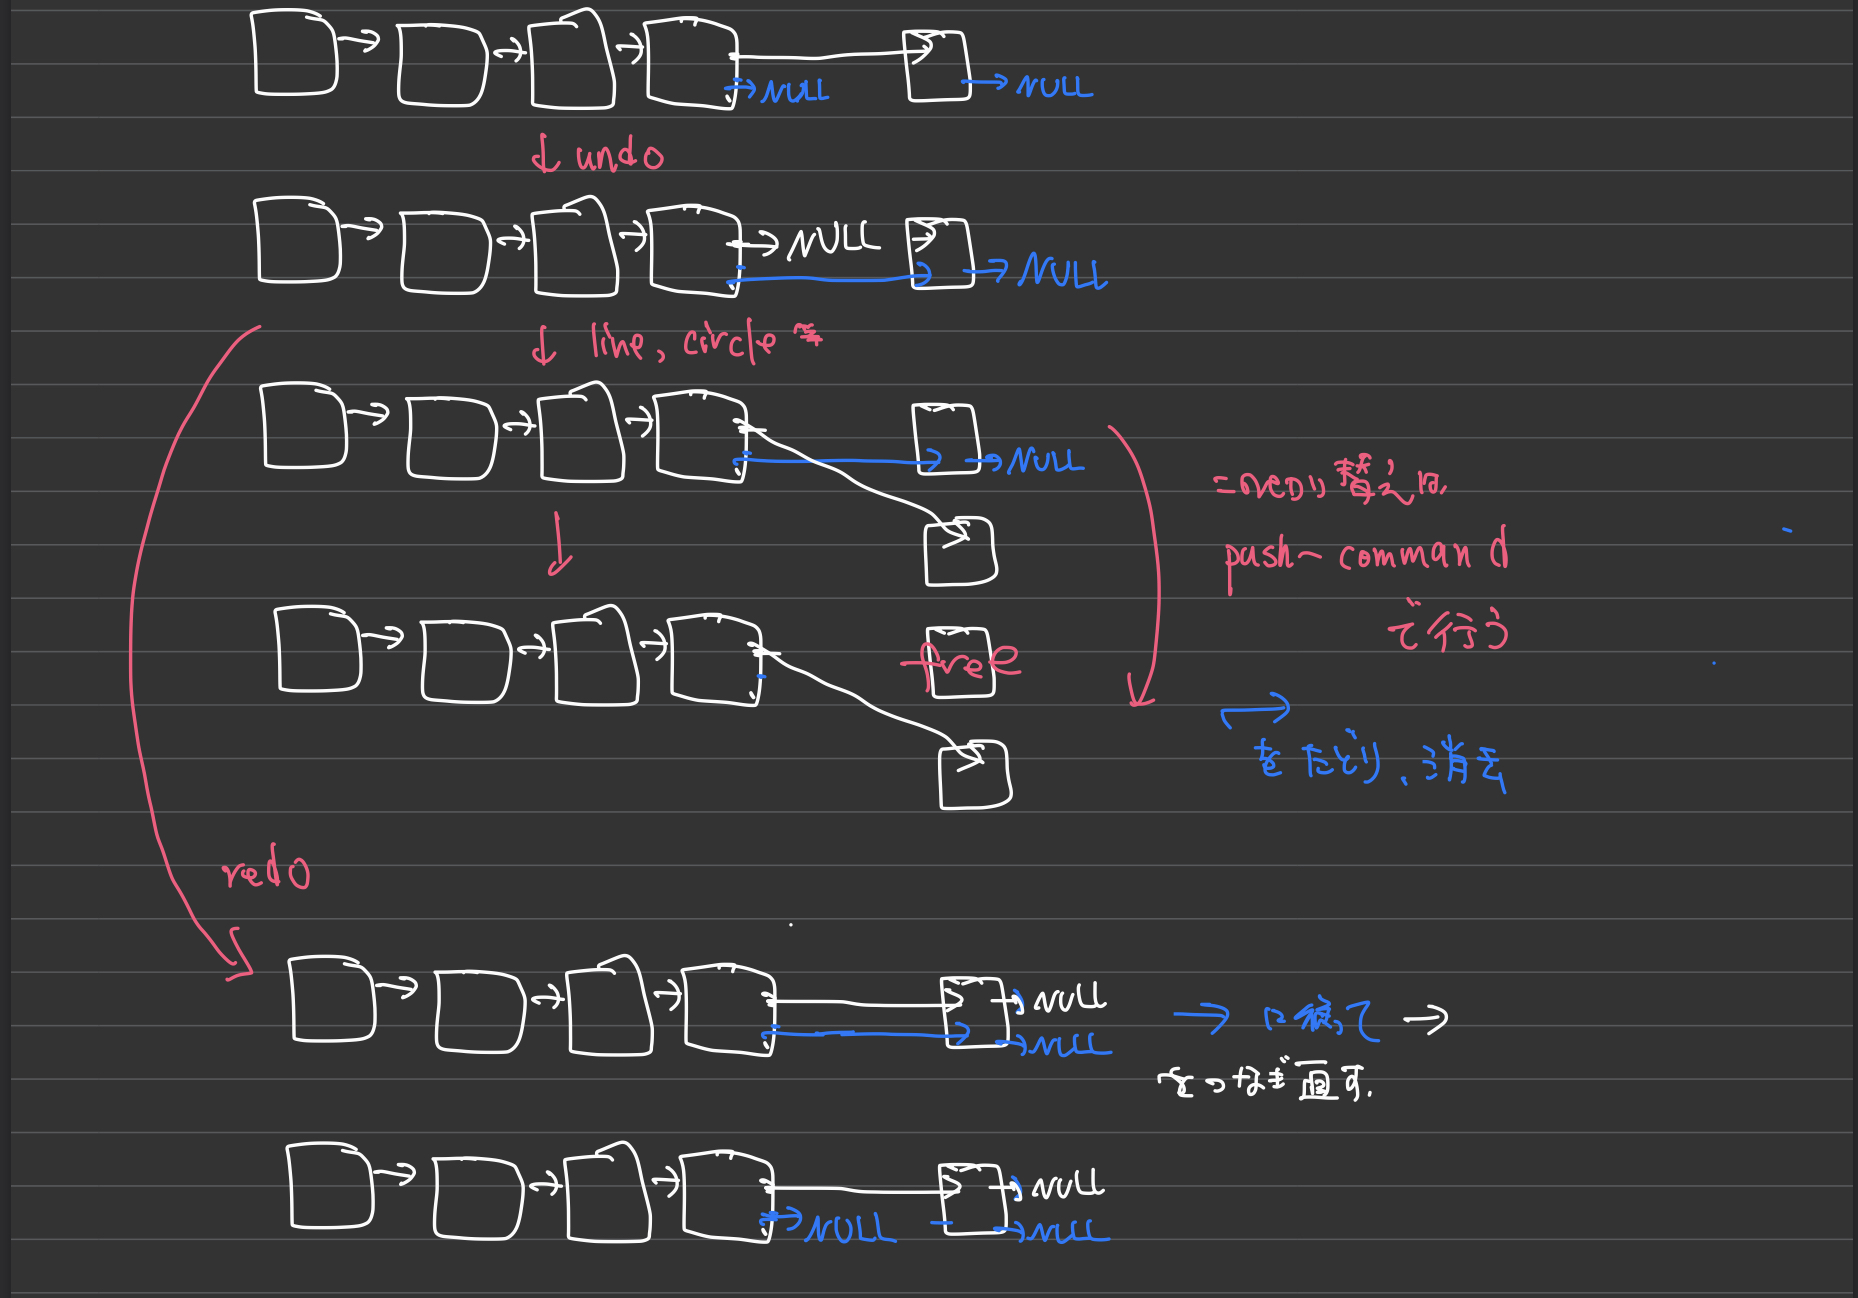 NULL NULL
↓ undo
NULL NULL
↓ line, circle 等
NULL
この切り替えは、
push-command
で行う
free
→
をたどり、消去
redo
NULL
NULL
→ に従って →
をつなぎ直す.
NULL
NULL NULL